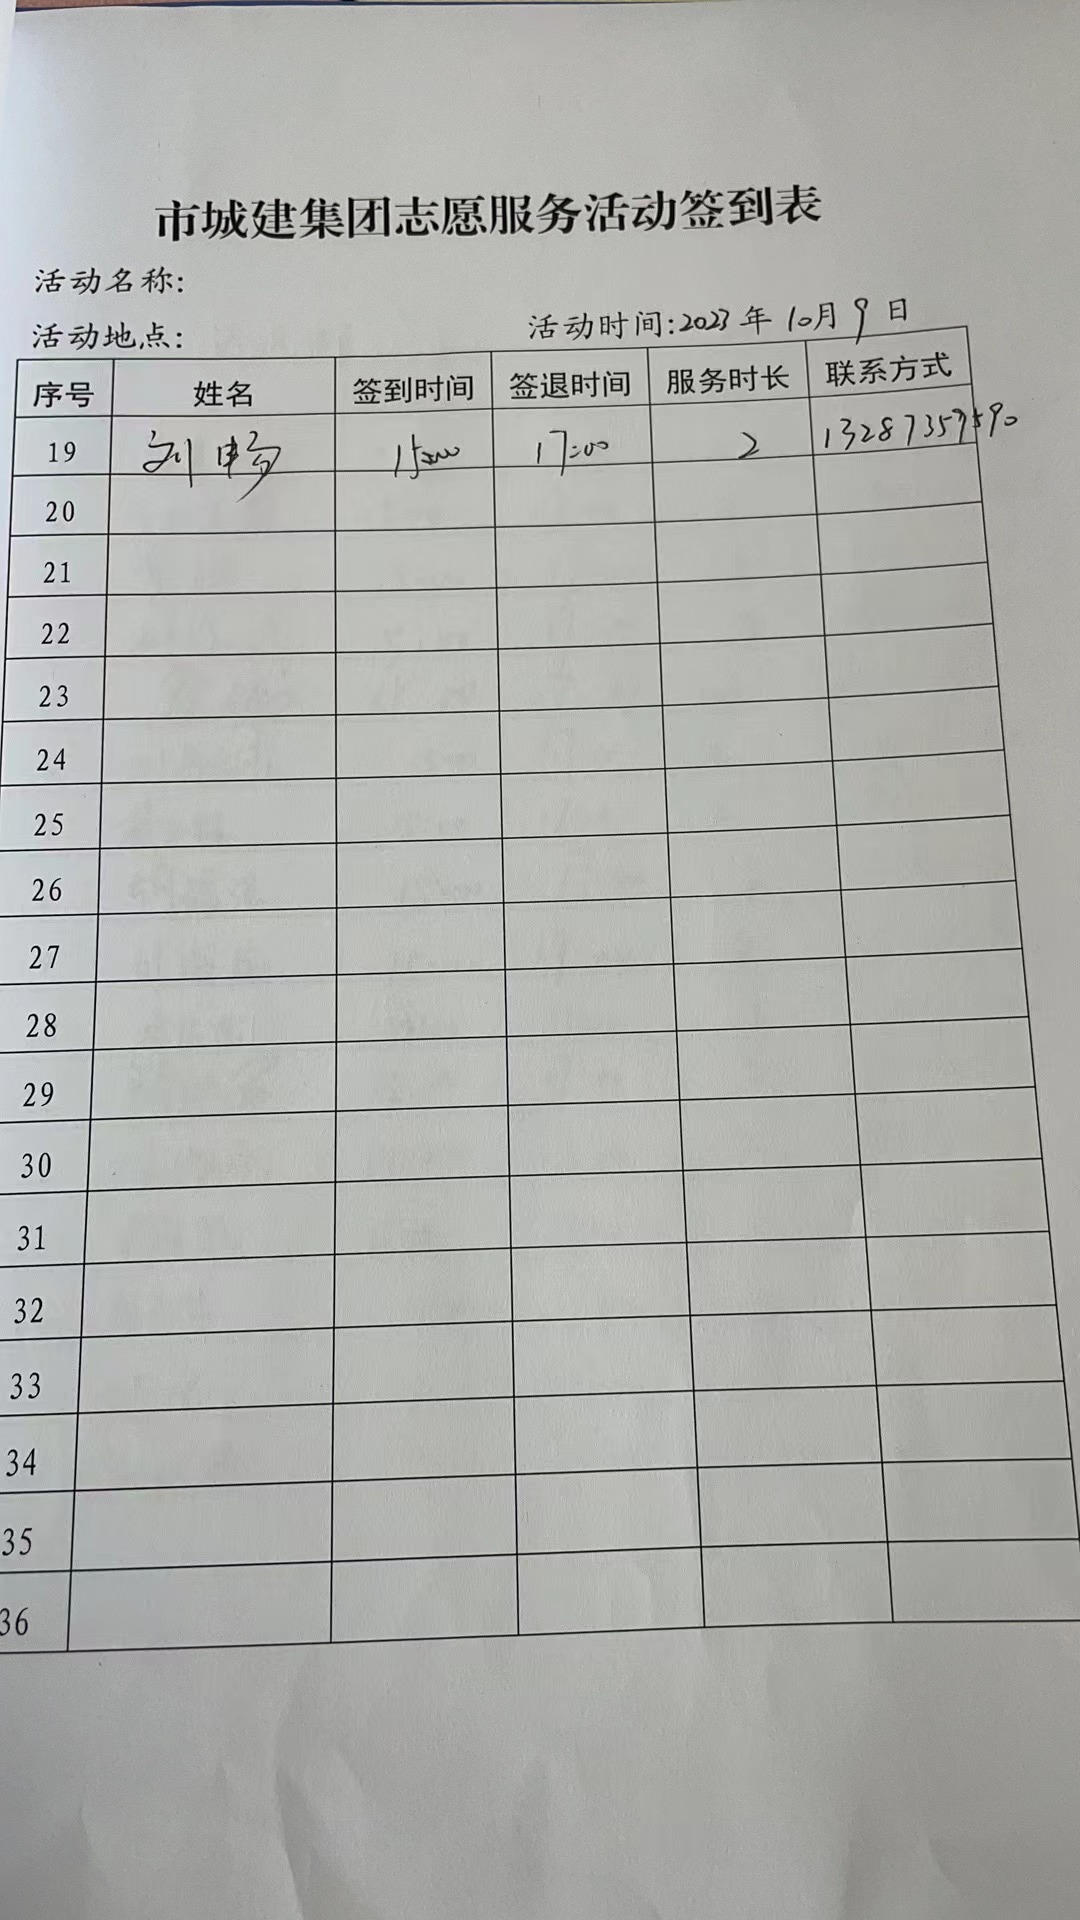 市城建集团志愿服务活动签到表
活动名称:
活动地点: 活动时间:2023年10月9日
序号 姓名 签到时间 签退时间 服务时长 联系方式
19 刘畅 15:00 17:00 2 13287357590
20
21
22
23
24
25
26
27
28
29
30
31
32
33
34
35
36